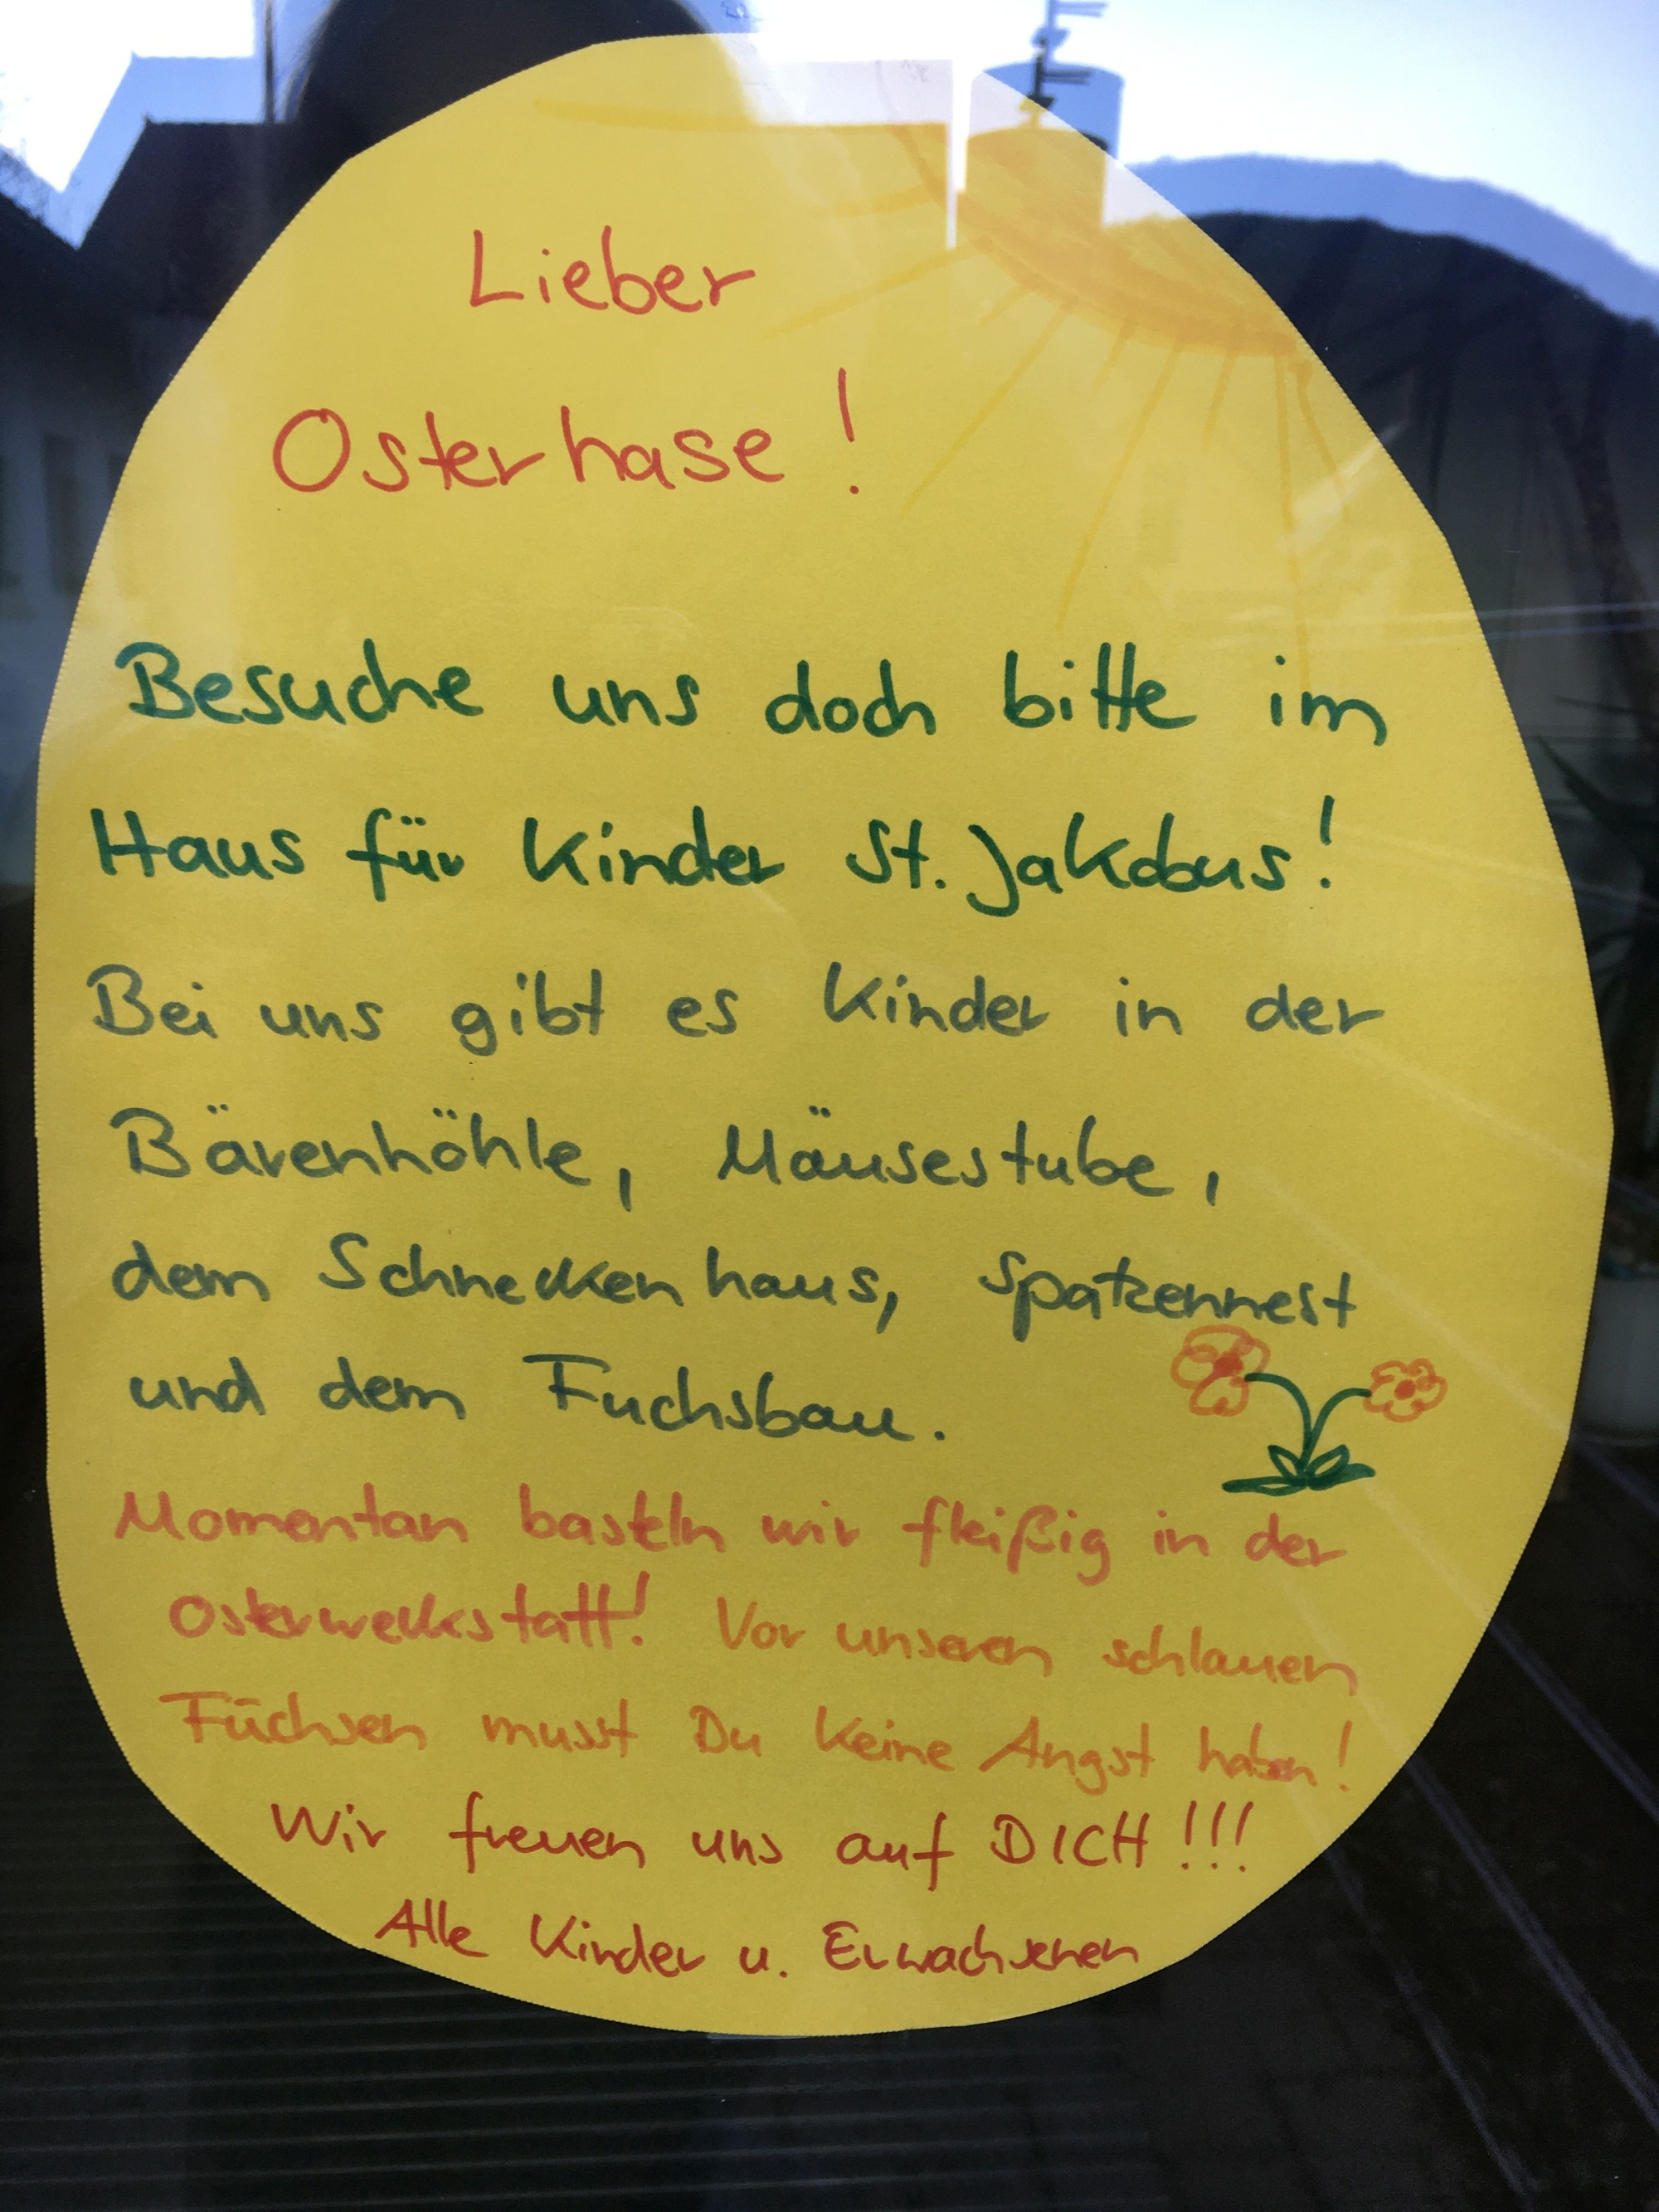 Lieber
Osterhase!
Besuche uns doch bitte im
Haus für Kinder St. Jakobus!
Bei uns gibt es Kinder in der
Bärenhöhle, Mäusestube,
dem Schneckenhaus, Spatzennest
und dem Fuchsbau.
Momentan basteln wir fleißig in der
Osterwerkstatt! Vor unseren schlauen
Füchsen musst Du keine Angst haben!
Wir freuen uns auf DICH!!!
Alle Kinder u. Erwachsenen